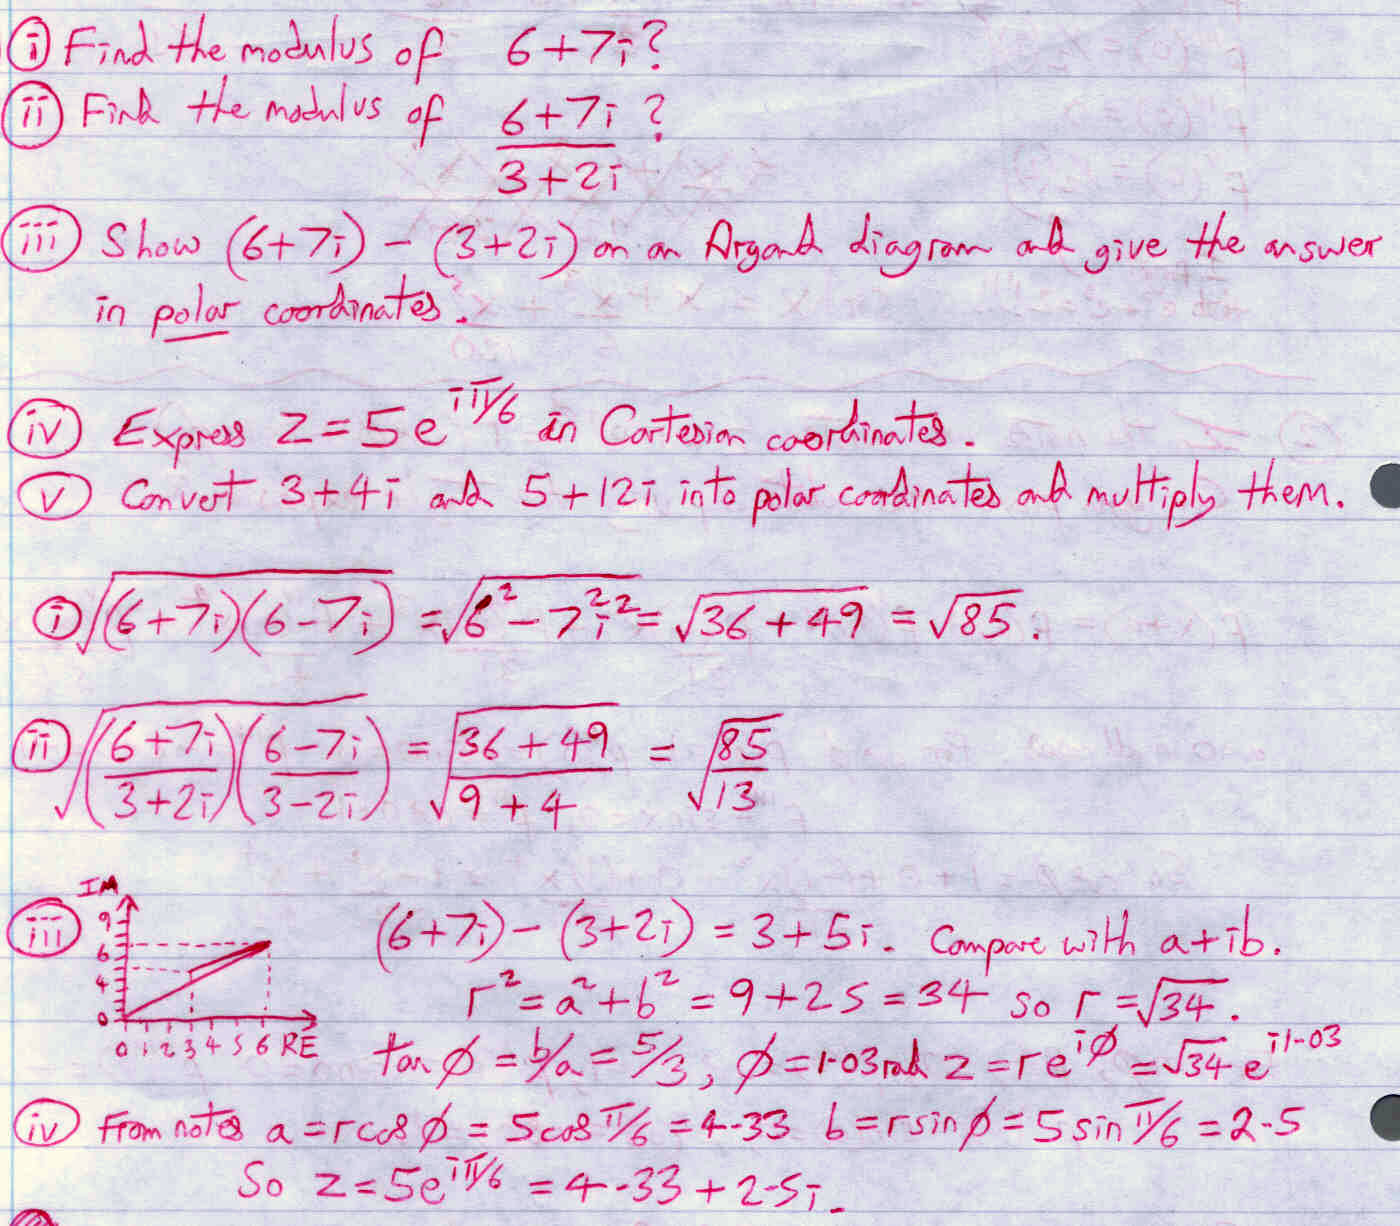 (i) Find the modulus of 6+7i?
(ii) Find the modulus of (6+7i)/(3+2i)?
(iii) Show (6+7i) - (3+2i) on an Argand diagram and give the answer
in polar coordinates.
(iv) Express z = 5e^{iπ/6} in Cartesian coordinates.
(v) Convert 3+4i and 5+12i into polar coordinates and multiply them.
(i) √((6+7i)(6-7i)) = √(6² - 7²i²) = √(36+49) = √85.
(ii) √(((6+7i)/(3+2i))((6-7i)/(3-2i))) = √((36+49)/(9+4)) = √(85/13)
(iii) (6+7i) - (3+2i) = 3+5i. Compare with a+ib.
r² = a² + b² = 9+25 = 34 so r = √34.
tan φ = b/a = 5/3, φ = 1.03 rad z = re^{iφ} = √34 e^{i1.03}
IM
9
6
4
0
0 1 2 3 4 5 6 RE
(iv) From notes a = r cos φ = 5 cos π/6 = 4.33 b = r sin φ = 5 sin π/6 = 2.5
So z = 5e^{iπ/6} = 4.33 + 2.5i.